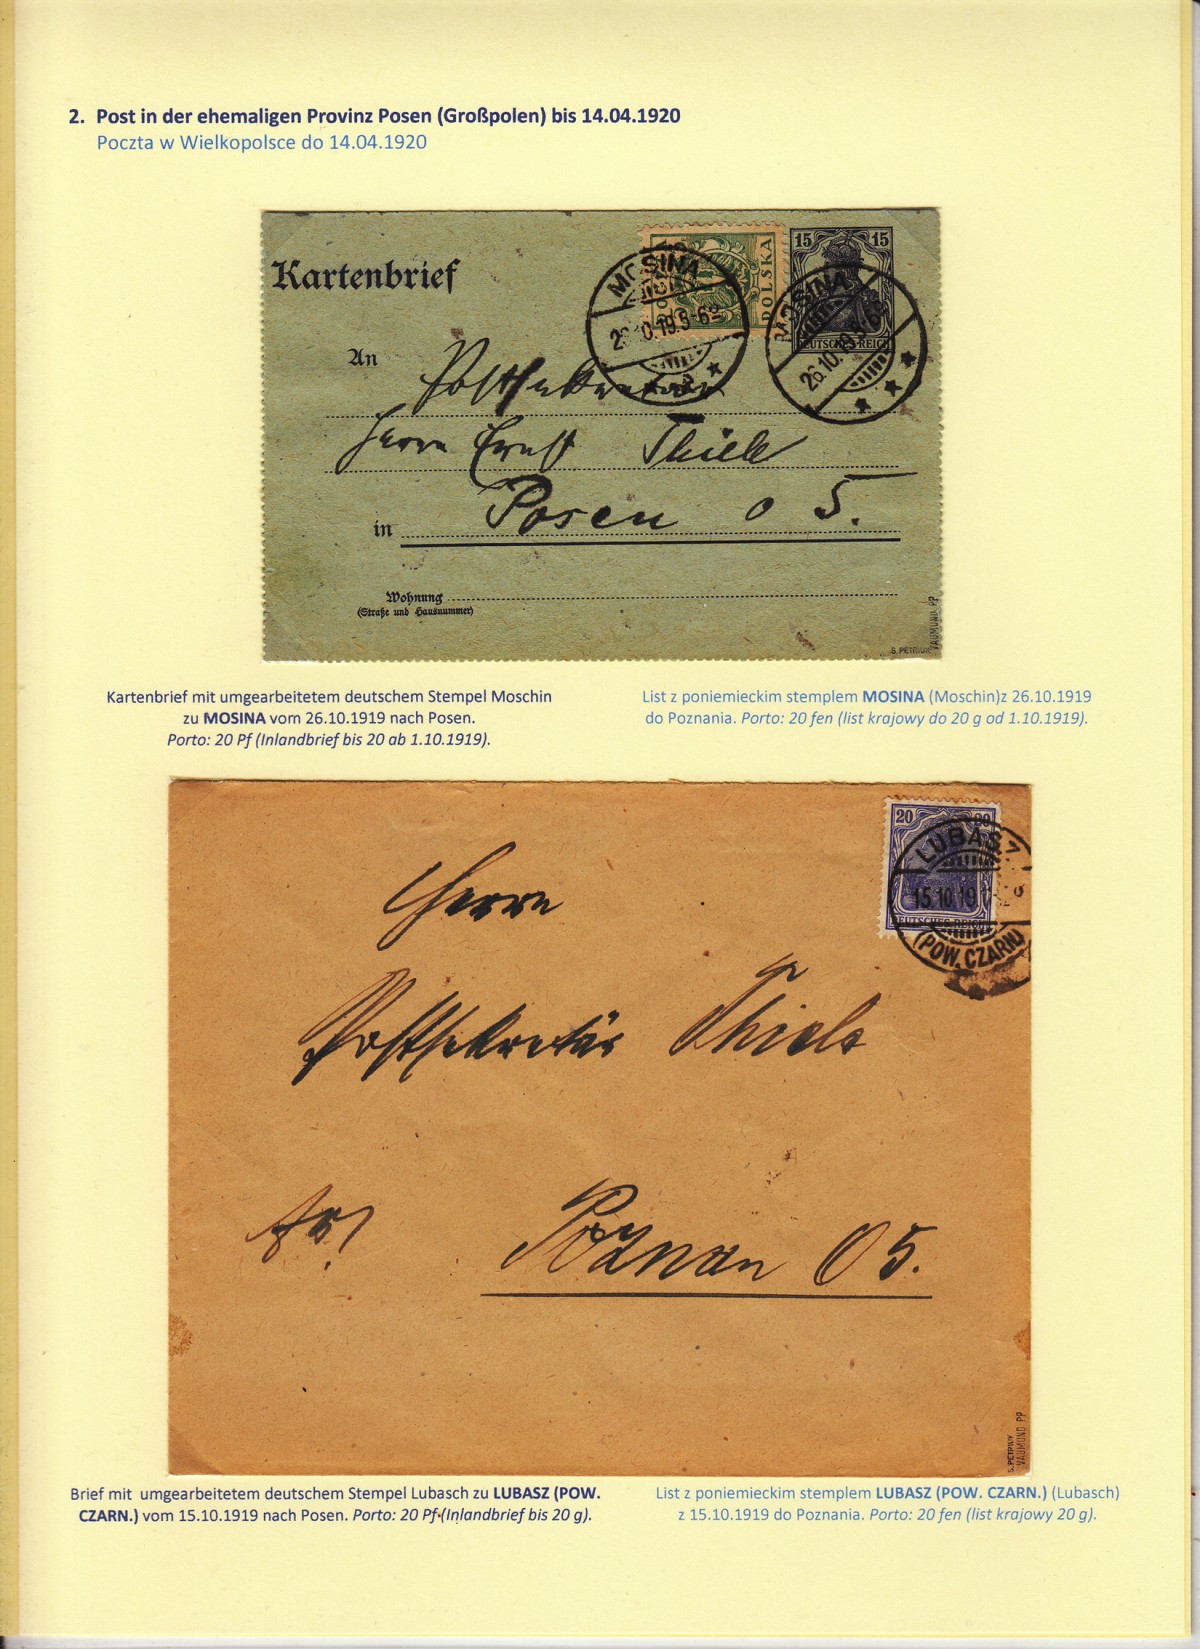 2. Post in der ehemaligen Provinz Posen (Großpolen) bis 14.04.1920
Poczta w Wielkopolsce do 14.04.1920
Kartenbrief
POLSKA
15 15
DEUTSCHES REICH
MOSINA
MOSINA
26.10.19.5-6
An
Herrn Ernst Thiele
in Posen O 5.
Wohnung
(Straße und Hausnummer)
S. PETRIUK
VAUMUND PP
Kartenbrief mit umgearbeitetem deutschem Stempel Moschin
zu MOSINA vom 26.10.1919 nach Posen.
Porto: 20 Pf (Inlandbrief bis 20 ab 1.10.1919).
List z poniemieckim stemplem MOSINA (Moschin)z 26.10.1919
do Poznania. Porto: 20 fen (list krajowy do 20 g od 1.10.1919).
20 20
LUBASZ
15.10.19
DEUTSCHES REICH
(POW. CZARN.)
Herrn
Postsekretär Thiele
Poznan O 5.
S. PETRIUK
VAUMUND PP
Brief mit umgearbeitetem deutschem Stempel Lubasch zu LUBASZ (POW.
CZARN.) vom 15.10.1919 nach Posen. Porto: 20 Pf (Inlandbrief bis 20 g).
List z poniemieckim stemplem LUBASZ (POW. CZARN.) (Lubasch)
z 15.10.1919 do Poznania. Porto: 20 fen (list krajowy 20 g).